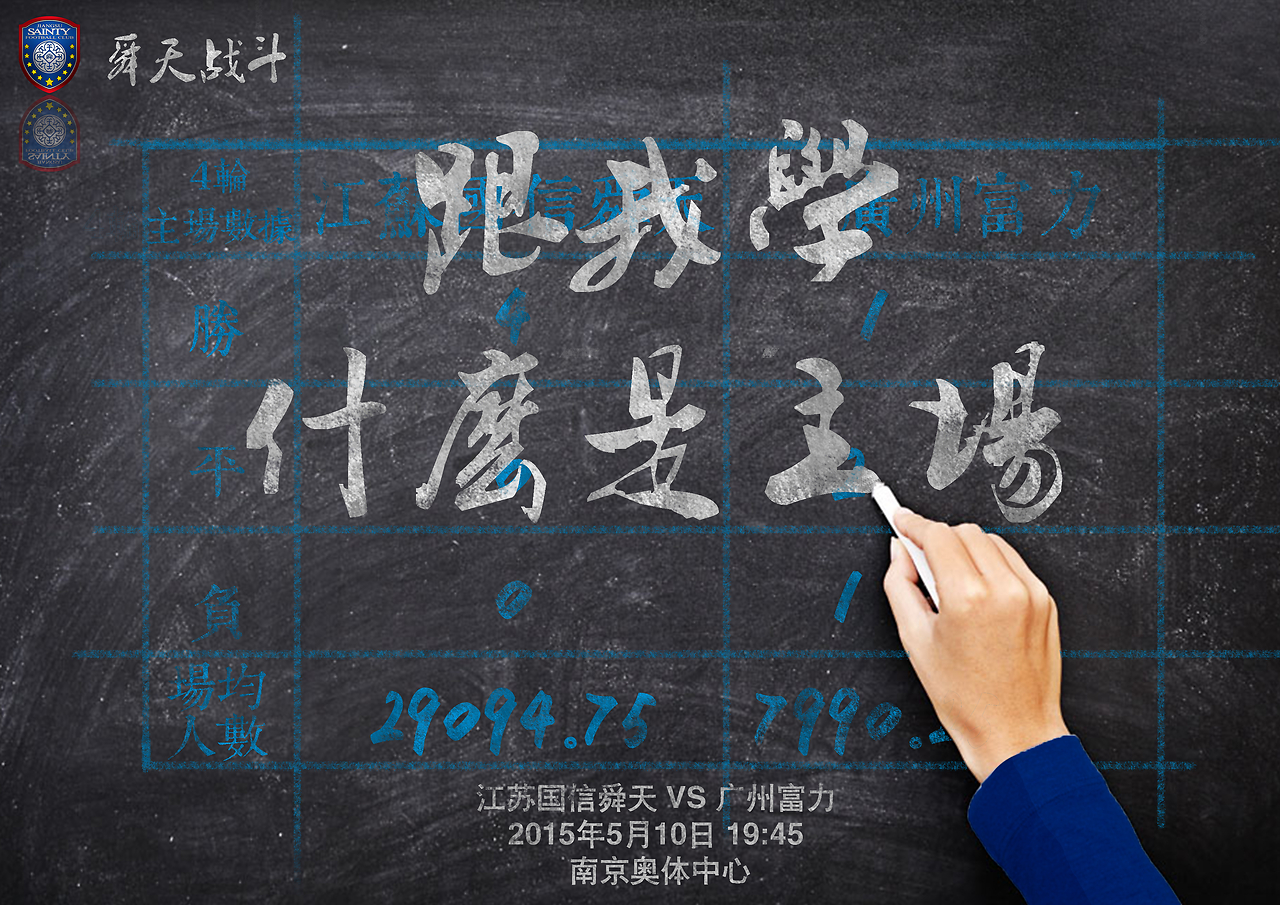 JIANGSU
SAINTY
FOOTBALL CLUB
舜天战斗
跟我學
什麼是主場
4輪
主場數據 江蘇國信舜天 廣州富力
勝 4 1
平 0 2
負 0 1
場均
人數 29094.75 7990.
江苏国信舜天 VS 广州富力
2015年5月10日 19:45
南京奥体中心